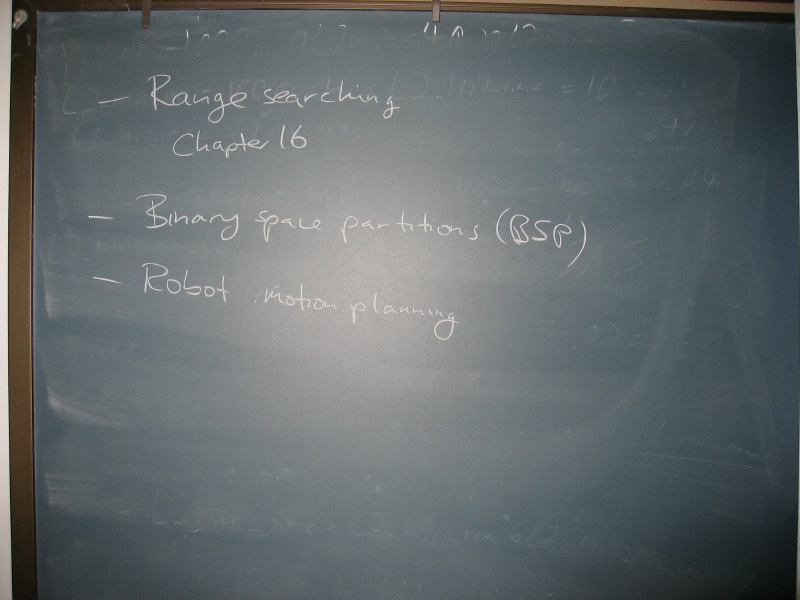 - Range searching
Chapter 16
- Binary space partitions (BSP)
- Robot motion planning